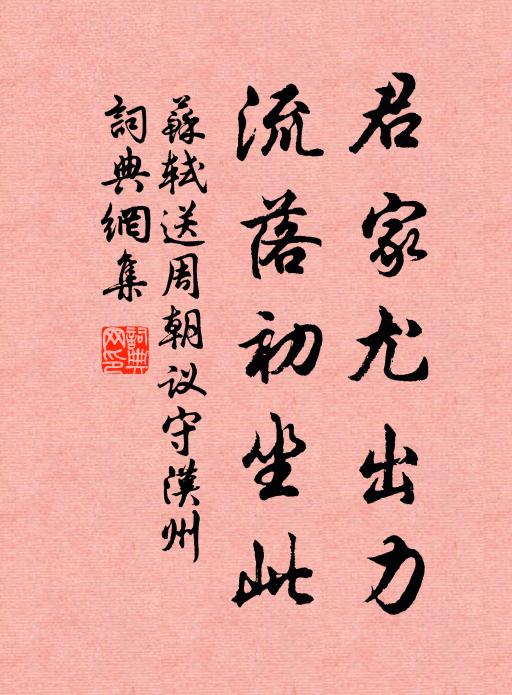 君家尤出力
流落初坐此
蘇軾送周朝议守漢州
詞典網集
詞典
网印